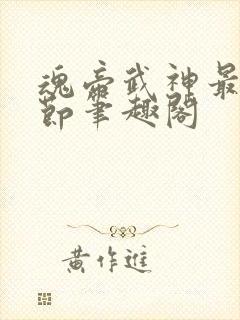 魂帝武神最
節筆趣閣
黃作進